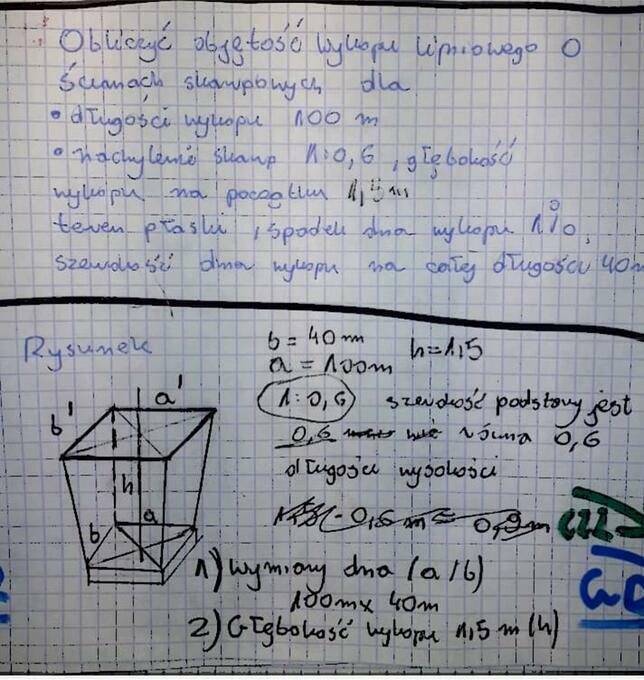 Obliczyć objętość wykopu liniowego o
ścianach skarpowych dla
• długości wykopu 100 m
• nachylenie skarp 1:0,6, głębokość
wykopu na początku 1,5m
teren płaski, spadek dna wykopu 1%,
szerokość dna wykopu na całej długości 40m
Rysunek
b = 40m
a = 100m
h = 1,5
1:0,6 szerokość podstawy jest
0,6 równa 0,6
długości wysokości
- 0,6 m = 0,9m
a'
b'
h
b
a
1) Wymiary dna (a/b)
100m x 40m
2) Głębokość wykopu 1,5 m (h)